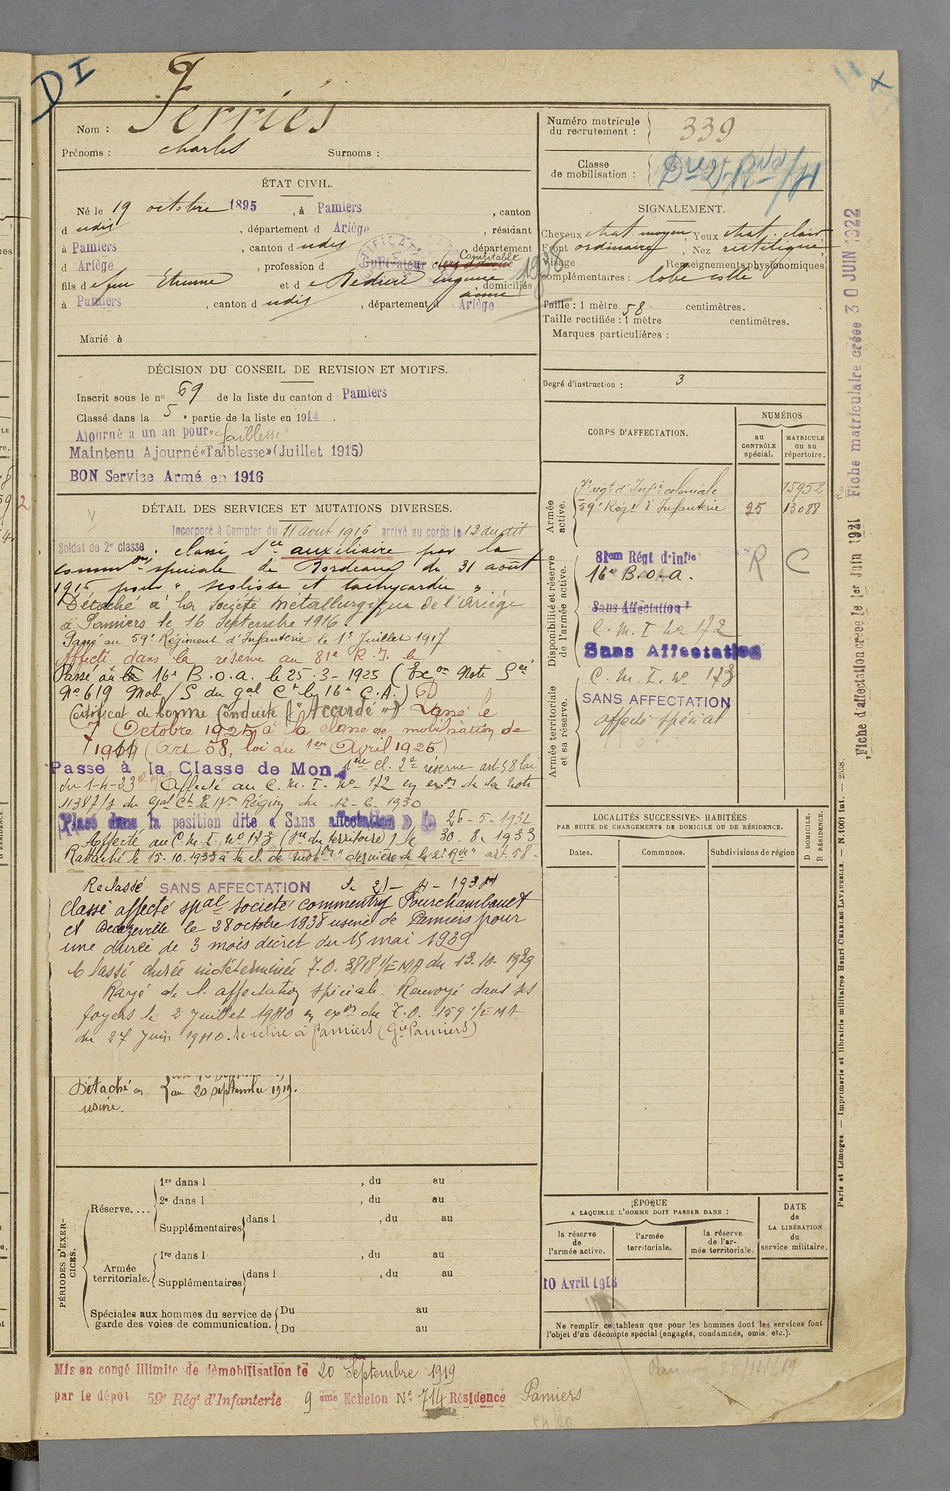 DI
Nom : Ferriés
Prénoms : Charles Surnoms :
Numéro matricule du recrutement : 339
Classe de mobilisation :
ÉTAT CIVIL.
Né le 19 octobre 1895, à Pamiers, canton
d udit, département d Ariège, résidant
à Pamiers, canton d udit, département
d Ariège, profession d Cultivateur Comptable
fils d e feu Etienne et d e Eugénie Anne, domiciliés
à Pamiers, canton d udit, département d Ariège
Marié à
SIGNALEMENT.
Cheveux chat. moyen, Yeux chat. clair
Front ordinaire, Nez rectiligne
Visage Renseignements physionomiques
complémentaires : lobe collé
Taille : 1 mètre 58 centimètres.
Taille rectifiée : 1 mètre centimètres.
Marques particulières :
Degré d'instruction : 3
DÉCISION DU CONSEIL DE REVISION ET MOTIFS.
Inscrit sous le n° 69 de la liste du canton d Pamiers
Classé dans la 5e partie de la liste en 1914.
Ajourné a un an pour "faiblesse"
Maintenu Ajourné «Faiblesse» (Juillet 1915)
BON Service Armé en 1916
DÉTAIL DES SERVICES ET MUTATIONS DIVERSES.
Incorporé à Compter du 11 Aout 1916 arrivé au corps le 12 du dit
Soldat de 2e classe. classé Sce auxiliaire par la
common spéciale de Bordeaux du 31 août
1916 pour " scoliose et tachycardie "
Détaché à la Société Métallurgique de l'Ariège
à Pamiers le 16 Septembre 1916
Passé au 59e Régiment d'Infanterie le 1er Juillet 1917
Affecté dans la réserve au 81e R.I. le
Passé au 16e B.O.A. le 25-3-1925 (Exon Note Sce
No 619 Mob/S du gal Ct le 16e C.A.)
Certificat de bonne Conduite "Accordé" Passé le
7 Octobre 1925 à la classe de mobilisation de
(art 58, loi du 1er Avril 1926)
Passé à la Classe de Mon
du 1-4-23 Affecté au C.M.I. No 172 en exon de la Note
du Gal Ct la Région du 12-6-1930
Placé dans la position dite « Sans affectation » le 26-5-1932
Affecté au C.M.I. No 173 le 30.8.1933
Rattaché le 15-10-1933 à la cl. de mobon "dernière de la 2e Rve" art-58-
Reclassé SANS AFFECTATION
Classé affecté spal société Commentry Fourchambault
et Decazeville le 28 octobre 1938 usine de Pamiers pour
une durée de 3 mois décret du 15 mai 1939
Classé durée indéterminée T.O. 3818 1/EMA du 13.10.1939
Rayé de l'affectation spéciale. Renvoyé dans ses
foyers le 2 juillet 1940 en exon du T.O. 159 1/EMA
du 27 juin 1940. Se retire à Pamiers (Gie Pamiers)
Détaché en usine. au 20 septembre 1919.
CORPS D'AFFECTATION.
NUMÉROS
au CONTRÔLE spécial.
MATRICULE ou au répertoire.
Armée active.
7e régt d'Infie coloniale 15952
59e Régt d'Infanterie 25 13088
Disponibilité et réserve de l'armée active.
81em Régt d'Infie
16e B.O.A.
R C
Sans Affectation
C.M.I. No 172
Sans Affectation
Armée territoriale et sa réserve.
C.M.I. No 173
SANS AFFECTATION
affecté spécial
LOCALITÉS SUCCESSIVES HABITÉES
PAR SUITE DE CHANGEMENTS DE DOMICILE OU DE RÉSIDENCE.
Dates. Communes. Subdivisions de région
D DOMICILE. R RÉSIDENCE.
PÉRIODES D'EXERCICES.
Réserve....
1re dans l , du au
2e dans l , du au
Supplémentaires dans l , du au
Armée territoriale.
1re dans l , du au
Supplémentaires dans l , du au
Spéciales aux hommes du service de garde des voies de communication. Du au
Du au
ÉPOQUE
A LAQUELLE L'HOMME DOIT PASSER DANS :
la réserve de l'armée active.
l'armée territoriale.
la réserve de l'armée territoriale.
DATE DE LA LIBÉRATION du service militaire.
10 Avril 1918
Ne remplir ce tableau que pour les hommes dont les services font
l'objet d'un décompte spécial (engagés, condamnés, omis, etc.).
Mis en congé illimité de démobilisation le 20 Septembre 1919
par le dépôt 59e Régt d'Infanterie 9 eme Echelon No 714 Résidence Pamiers
Fiche matriculaire créée 30 JUIN 1922
Fiche d'affectation créée le 1er Juin 1931
Paris et Limoges. — Imprimerie et librairie militaires Henri CHARLES-LAVAUZELLE. — N. 1001 Int. — 2508.